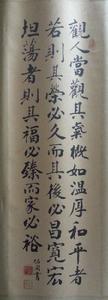 觀人當觀其氣概如溫厚和平者
若則其榮必久而其後必昌寬宏
坦蕩者則其福必臻而家必裕